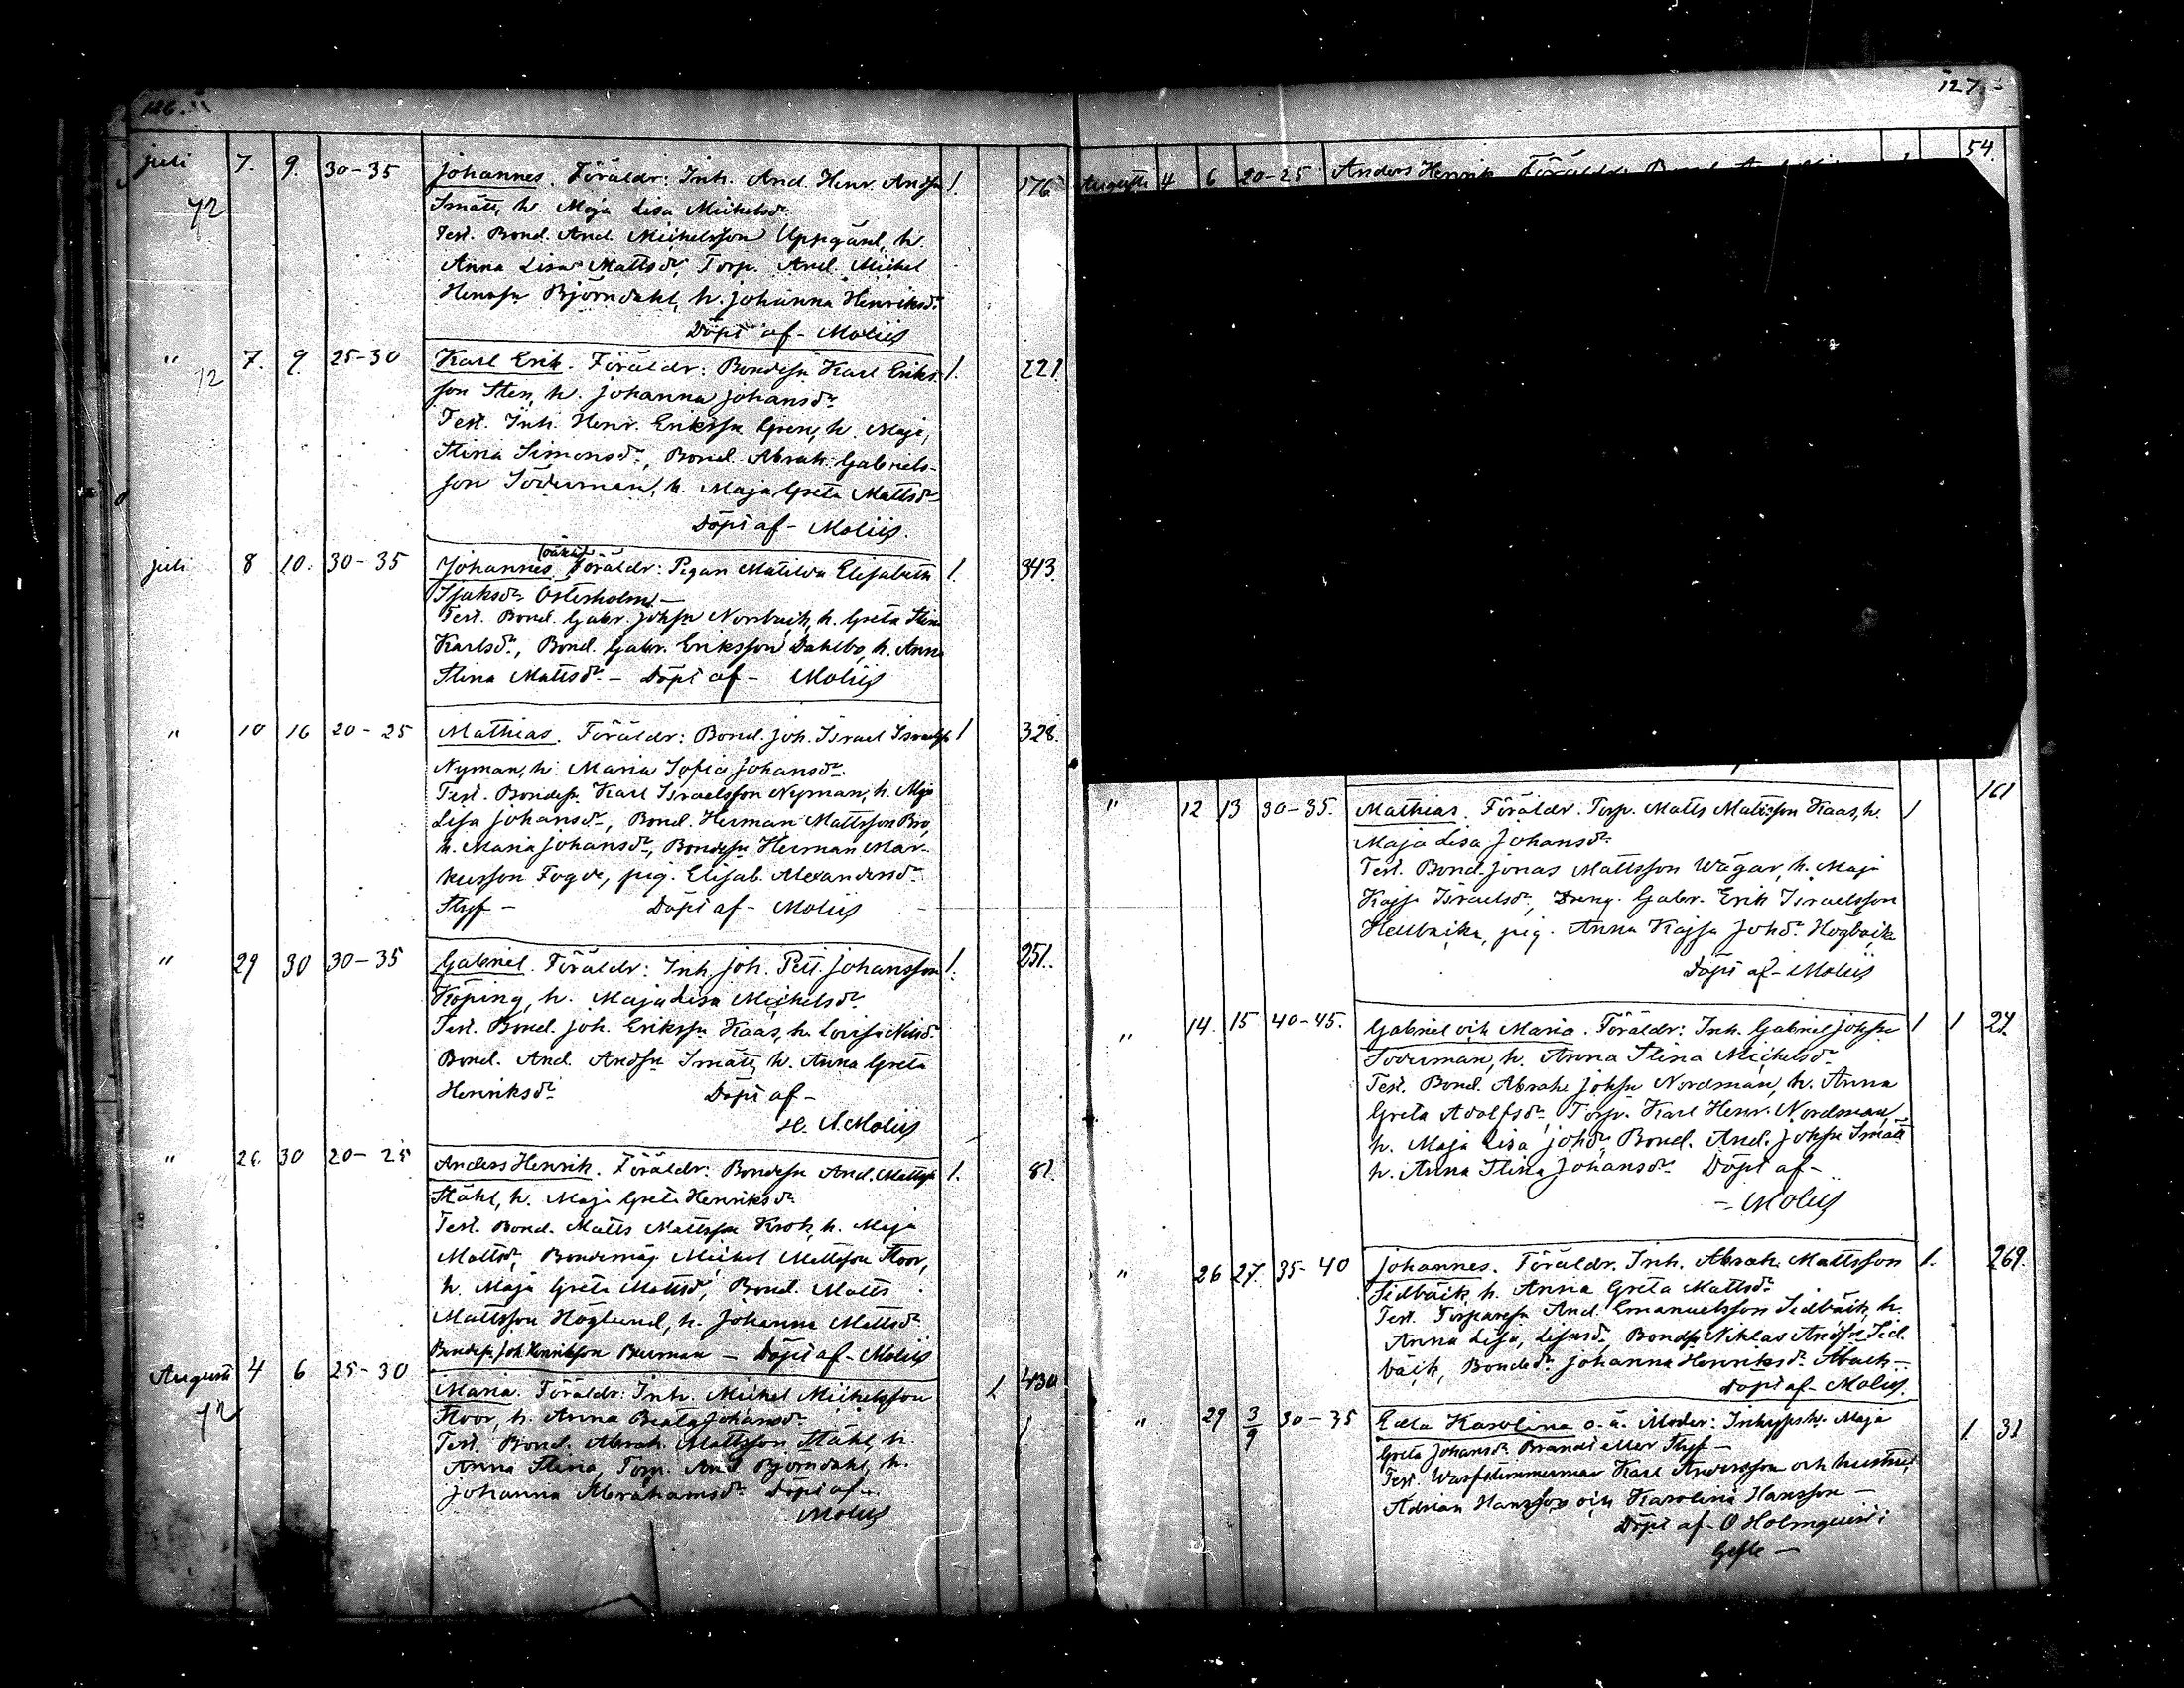 126.
juli 7. 9. 30-35 Johannes. Föräldr: Inh. And. Henr. Andsn 1. 176
72 Smått, h. Maja Lisa Michelsdr
Test. Bond. And. Michelsson Uppgård, h.
Anna Lisa Mattsdr, Torp. And. Michel
Henrsn Björndahl, h. Johanna Henriksdr
Döpt af - Moliis
" 7. 9. 25-30 Karl Erik. Föräldr: Bondesn Karl Eriks- 1. 221.
72 son Sten, h. Johanna Johansdr
Test. Inh. Henr. Erikssn Gren, h. Maja
Stina Simonsdr, Bond. Abrah. Gabriels-
son Söderman, h. Maja Greta Mattsdr
Döpt af - Moliis.
juli 8 10. 30-35 Johannes, oäkta Föräldr: Pigan Matilda Elisabeth 1. 343.
Isaksdr Österholm -
Test. Bond. Gabr. Johsn Norrbäck, h. Greta Stina
Karlsdr, Bond. Gabr. Eriksson Dahlbo, h. Anna
Stina Mattsdr - Döpt af - Moliis
" 10 16 20-25 Mathias. Föräldr: Bond. Joh. Israel Israelsn 1 328.
Nyman, h. Maria Sofia Johansdr
Test. Bondesn Karl Israelsson Nyman, h. Maja
Lisa Johansdr, Bond. Herman Mattsson Bro,
h. Maria Johansdr, Bondesn Herman Mar-
kusson Fogde, pig. Elisab. Alexandersdr
Styf - Döpt af - Moliis
" 29 30 30-35 Gabriel. Föräldr: Inh. Joh. Pett. Johansson 1. 251.
Köping, h. Maja Lisa Michelsdr
Test. Bond. Joh. Erikssn Kaas, h. Lovisa Nilsdr
Bond. And. Andsn Smått, h. Anna Greta
Henriksdr Döpt af -
H. A. Moliis
" 26 30 20-25 Anders Henrik. Föräldr: Bondesn And. Mattssn 1. 81.
Ståhl, h. Maja Greta Henriksdr
Test. Bond. Matts Mattssn Krok, h. Maja
Mattsdr, Bondemåg Michel Mattsson Stoor,
h. Maja Greta Mattsdr, Bond. Matts
Mattsson Höglund, h. Johanna Mattsdr
Bondesn Joh. Henriksson Buurman - Döpt af - Moliis
Augusti 4 6 25-30 Maria. Föräldr: Inh. Michel Michelsson 1 430
72 Stoor, h. Anna Beata Johansdr
Test. Bond. Abrah. Mattsson Ståhl, h.
Anna Stina, Torp. And Björndahl, h.
Johanna Abrahamsdr Döpt af -
Moliis
127
54.
Augusti 4 6 20-25 Anders Henrik Föräldr Bond.
" 12 13 30-35. Mathias. Föräldr. Torp. Matts Mattsson Kaas, h. 1 161
Maja Lisa Johansdr
Test. Bond. Jonas Mattsson Wägar, h. Maja
Kajsa Israelsdr, Dreng. Gabr. Erik Israelsson
Hellbäika, pig. Anna Kajsa Johdr Högbäck
Döpt af - Moliis
" 14. 15 40-45. Gabriel och Maria. Föräldr: Inh. Gabriel Johssn 1 1 27.
Söderman, h. Anna Stina Michelsdr
Test. Bond. Abrah. Johsn Nordman, h. Anna
Greta Adolfsdr, Torp. Karl Henr. Nordman,
h. Maja Lisa Johdr, Bond. And. Johsn Smått
h. Anna Stina Johansdr Döpt af -
- Moliis
" 26 27. 35-40 Johannes. Föräldr. Inh. Abrah. Mattsson 1. 269.
Sidbäck, h. Anna Greta Mattsdr
Test. Torparesn And. Emanuelsson Sidbäck, h.
Anna Lisa, Lisasdr, Bondsn Niklas Andsn Sid-
bäck, Bondedr Johanna Henriksdr Aback -
Döpt af - Moliis.
" 29 3/9 30-35 Edla Karolina o.ä. Moder: Inhyssh. Maja 1 31
Greta Johansdr Brandt eller Styf -
Test Warfstimmerman Karl Andersson och hustru,
Adrian Hansson och Karolina Hansson -
Döpt af - O Holmquist i
Gefle -